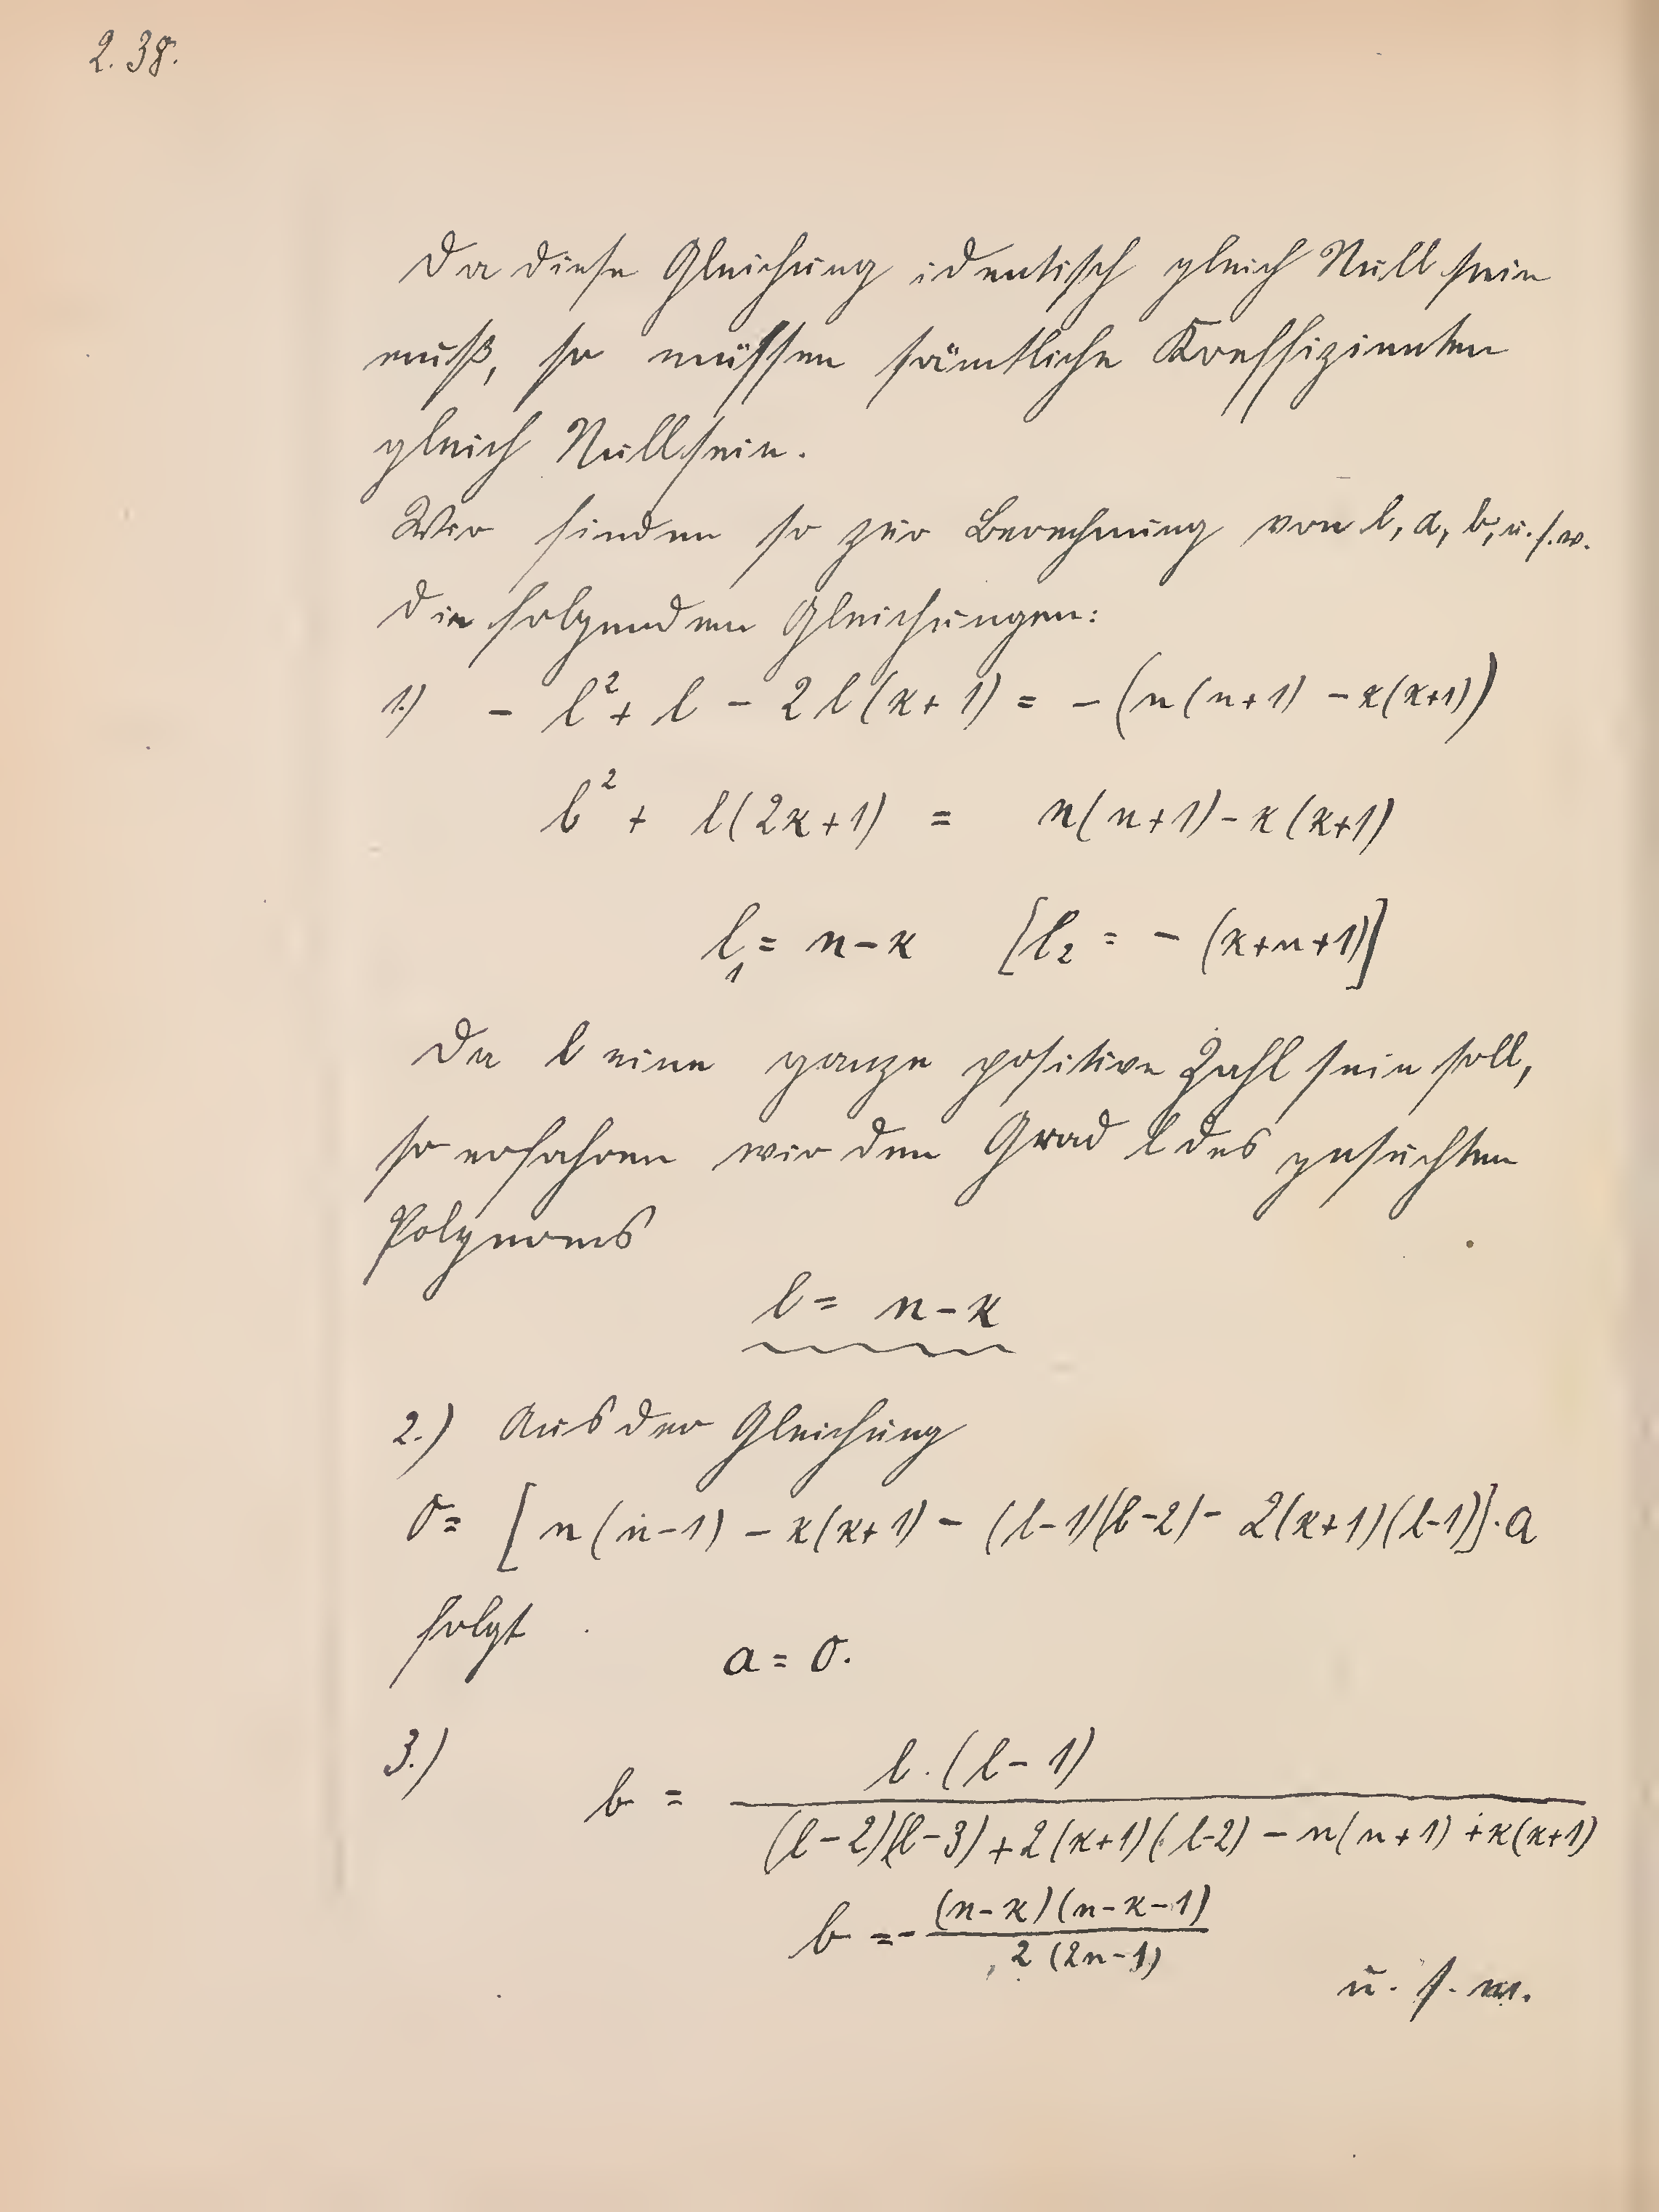 2. 38.
Da diese Gleichung identisch gleich Null sein
muß, so müssen sämtliche Koeffizienten
gleich Null sein.
Wir finden so zur Berechnung von l, a, b, u. s. w.
die folgenden Gleichungen:
1.) - l² + l - 2l(κ+1) = -(n(n+1) - κ(κ+1))
l² + l(2κ+1) = n(n+1) - κ(κ+1)
l₁ = n-κ [l₂ = - (κ+n+1)]
Da l eine ganze positive Zahl sein soll,
so erfahren wir den Grad l des gesuchten
Polynoms
l = n-κ
2.) Aus der Gleichung
0 = [n(n-1) - κ(κ+1) - (l-1)(l-2) - 2(κ+1)(l-1)]·a
folgt
a = 0.
3.) b = l·(l-1) / (l-2)(l-3) + 2(κ+1)(l-2) - n(n+1) + κ(κ+1)
b = - (n-κ)(n-κ-1) / 2(2n-1)
u. s. w.